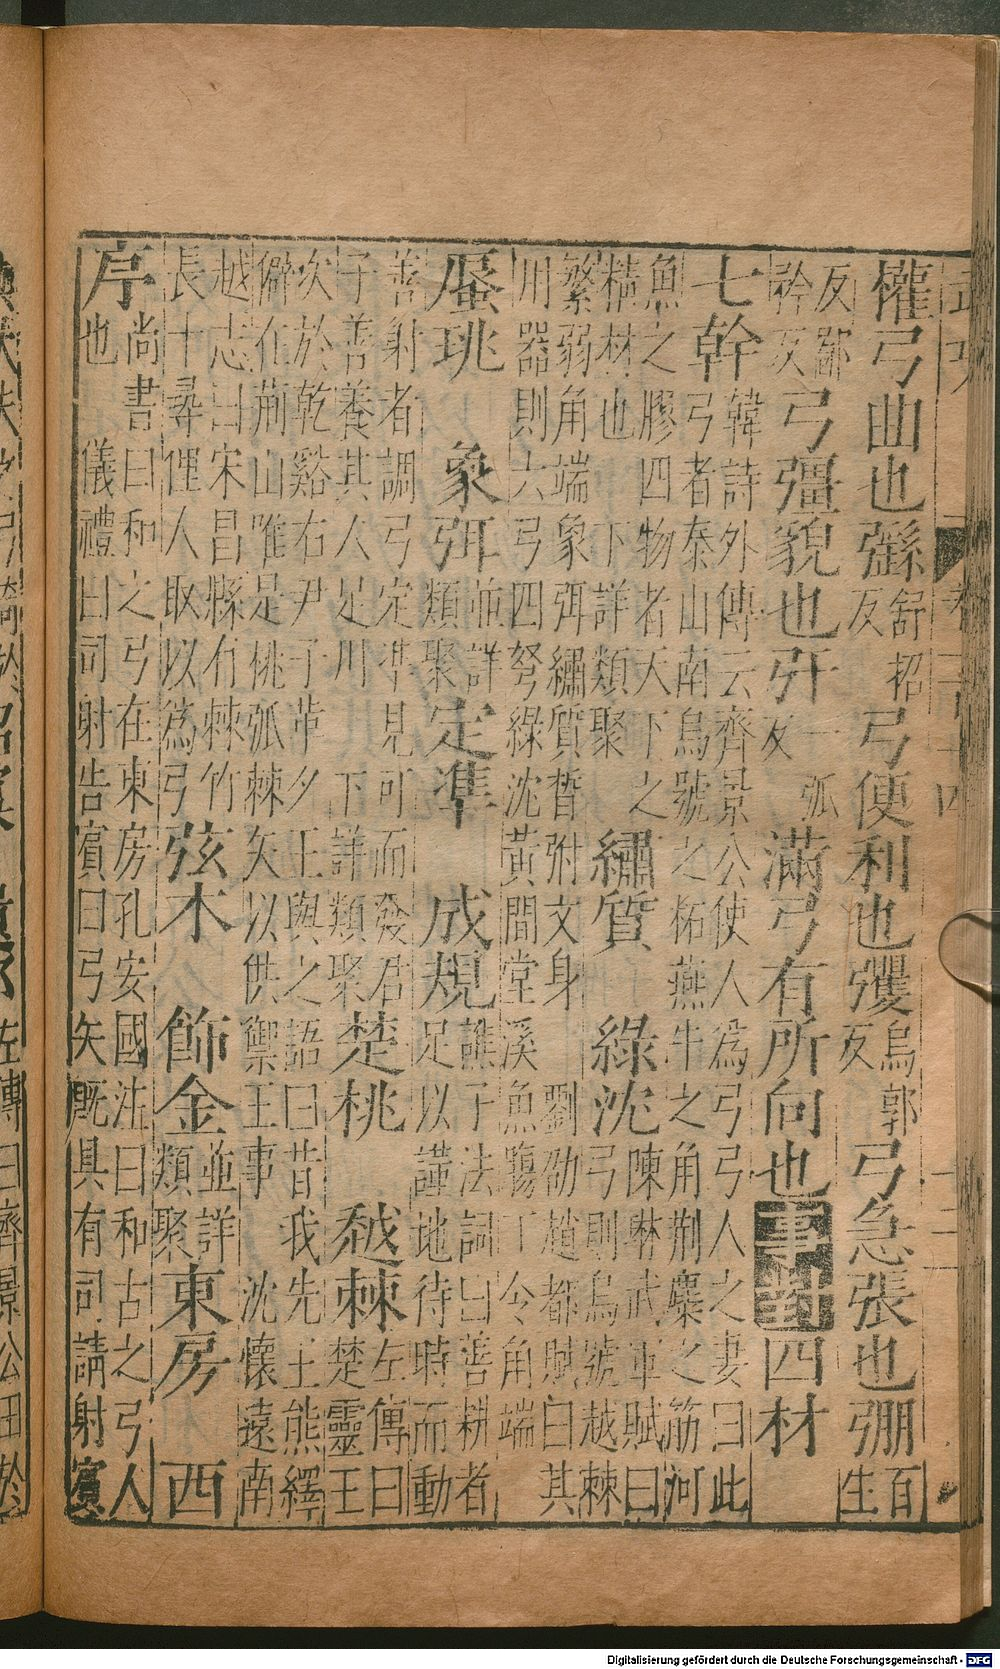 權弓曲也弲舒招反弓便利也彏烏郭反弓急張也弸百生
反鄒矜反弓彊貌也弙一孤反滿弓有所向也事對四材
七幹韓詩外傳云齊景公使人為弓弓人之妻曰此弓者秦山南烏號之柘燕牛之角荆麋之筋河
魚之膠四物者天下之精材也下詳類聚繡質綠沈陳琳武軍賦曰弓則烏號越棘
繁弱角端象弭繡質晳弣文身劉劭趙都賦曰其用器則六弓四弩綠沈黃間堂溪魚腸丁令角端
蜃珧象弭並詳類聚定準成規譙子法詞曰善耕者足以謹地待時而動
善射者調弓定準見可而發君子善養其人足川下詳類聚楚桃越棘左傳曰楚靈王
次於乾谿右尹子革夕王與之語曰昔我先王熊繹僻在荊山唯是桃弧棘矢以供禦王事沈懷遠南
越志曰宋昌縣有棘竹長十尋俚人取以為弓弦木飾金並詳類聚東房西
序尚書曰和之弓在東房孔安國注曰和古之弓人也儀禮曰司射告賓曰弓矢既具有司請射賓
Digitalisierung gefördert durch die Deutsche Forschungsgemeinschaft - DFG